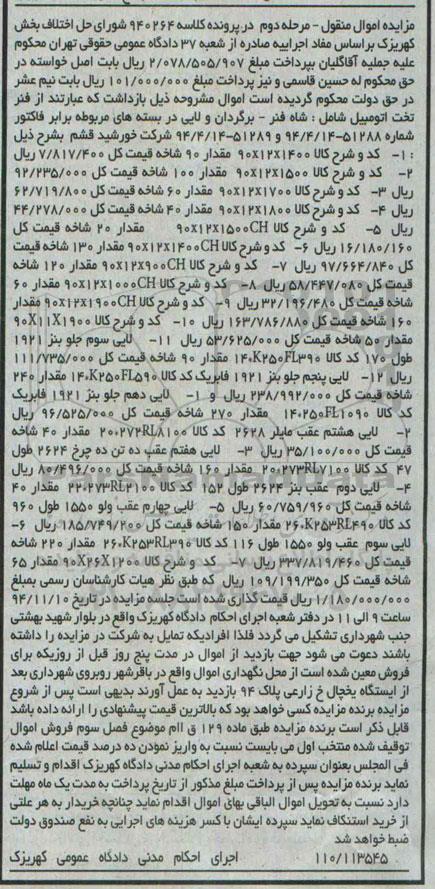 مزایده اموال منقول - مرحله دوم در پرونده کلاسه ۹۴۰۲۶۴ شورای حل اختلاف بخش
کهریزک براساس مفاد اجراییه صادره از شعبه ۳۷ دادگاه عمومی حقوقی تهران محکوم
علیه جملیه آقاگلیان بپرداخت مبلغ ۲/۰۷۸/۵۰۵/۹۰۷ ریال بابت اصل خواسته در
حق محکوم له حسین قاسمی و نیز پرداخت مبلغ ۱۰۱/۰۰۰/۰۰۰ ریال بابت نیم عشر
در حق دولت محکوم گردیده است اموال مشروحه ذیل بازداشت که عبارتند از فنر
تخت اتومبیل شامل : شاه فنر - برگردان و لایی در بسته های مربوطه برابر فاکتور
شماره ۵۱۲۸۸-۹۴/۴/۱۴ و ۵۱۲۸۹-۹۴/۴/۱۴ شرکت خورشید قشم بشرح ذیل
: ۱- کد و شرح کالا ۹۰x۱۲x۱۴۰۰ مقدار ۹۰ شاخه قیمت کل ۷/۸۱۷/۴۰۰ ریال
۲- کد و شرح کالا ۹۰x۱۲x۱۵۰۰ مقدار ۱۰۰ شاخه قیمت کل ۹۲/۲۳۵/۰۰۰
ریال ۳- کد و شرح کالا ۹۰x۱۲x۱۷۰۰ مقدار ۶۰ شاخه قیمت کل ۶۲/۷۱۹/۸۰۰
ریال ۴- کد و شرح کالا ۹۰x۱۲x۱۸۰۰ مقدار ۴۰ شاخه قیمت کل ۴۴/۲۷۸/۰۰۰
ریال ۵- کد و شرح کالا ۹۰x۱۲x۱۵۰۰CH مقدار ۲۰ شاخه قیمت کل
۱۶/۱۸۰/۱۶۰ ریال ۶- کد و شرح کالا ۹۰x۱۲x۱۴۰۰CH مقدار ۱۳۰ شاخه قیمت
کل ۹۷/۶۶۴/۸۴۰ ریال ۷- کد و شرح کالا ۹۰x۱۲x۹۰۰CH مقدار ۱۲۰ شاخه
قیمت کل ۵۸/۴۴۷/۰۸۰ ریال ۸- کد و شرح کالا ۹۰x۱۲x۱۰۰۰CH مقدار ۶۰
شاخه قیمت کل ۳۲/۱۹۶/۴۸۰ ریال ۹- کد و شرح کالا ۹۰x۱۲x۱۹۰۰CH مقدار
۱۶۰ شاخه قیمت کل ۱۶۳/۷۸۶/۸۸۰ ریال ۱۰- کد و شرح کالا ۹۰X۱۱X۱۹۰۰
مقدار ۵۰ شاخه قیمت کل ۵۳/۶۲۵/۰۰۰ ریال ۱۱- لایی سوم جلو بنز ۱۹۲۱
طول ۱۷۰ کد کالا ۱۴۰K۲۵۰FL۳۹۰ مقدار ۹۰ شاخه قیمت کل ۱۱۱/۷۳۵/۰۰۰
ریال ۱۲- لایی پنجم جلو بنز ۱۹۲۱ فابریک کد کالا ۱۴۰K۲۵۰FL۵۹۰ مقدار ۲۴۰
شاخه قیمت کل ۲۳۸/۹۹۲/۰۰۰ ریال و ۱- لایی دهم جلو بنز ۱۹۲۱ فابریک
کد کالا ۱۴۰۲۵۰FL۱۰۹۰ مقدار ۲۷۰ شاخه قیمت کل ۹۶/۵۲۵/۰۰۰ ریال
۲- لایی هشتم عقب مایلر ۲۶۲۸ کد کالا ۲۰۰۲۷۲RL۸۱۰۰ مقدار ۴۰ شاخه
قیمت کل ۳۵/۱۰۰/۰۰۰ ریال ۳- لایی هفتم عقب ده تن ده چرخ ۲۶۲۴ طول
۴۷ کد کالا ۲۰۰۲۷۳RL۷۱۰۰ مقدار ۱۶۰ شاخه قیمت کل ۸۰/۴۹۶/۰۰۰ ریال
۴- لایی دوم عقب بنز ۲۶۲۴ طول ۱۵۲ کد کالا ۲۲۰۲۷۳RL۲۱۰۰ مقدار ۴۰
شاخه قیمت کل ۶۰/۷۵۹/۹۶۰ ریال ۵- لایی چهارم عقب ولو ۱۵۵۰ طول ۹۶۰
کد کالا ۲۶۰K۲۵۳RL۴۹۰ مقدار ۱۵۰ شاخه قیمت کل ۱۸۵/۷۴۹/۲۰۰ ریال ۶-
لایی سوم عقب ولو ۱۵۵۰ طول ۱۱۶ کد کالا ۲۶۰K۲۵۳RL۳۹۰ مقدار ۲۲۰ شاخه
قیمت کل ۳۳۷/۸۱۹/۴۶۰ ریال ۷- کد و شرح کالا ۹۰X۲۶X۱۲۰۰ مقدار ۶۵
شاخه قیمت کل ۱۰۹/۱۹۹/۳۵۰ ریال که طبق نظر هیات کارشناسان رسمی بمبلغ
۱/۱۸۰/۰۰۰/۰۰۰ ریال قیمت گذاری شده است جلسه مزایده در تاریخ ۹۴/۱۱/۱۰
ساعت ۹ الی ۱۱ در دفتر شعبه اجرای احکام دادگاه کهریزک واقع در بلوار شهید بهشتی
جنب شهرداری تشکیل می گردد فلذا افرادیکه تمایل به شرکت در مزایده را داشته
باشند دعوت می شود جهت بازدید از اموال در مدت پنج روز قبل از روزیکه برای
فروش معین شده است از محل نگهداری اموال واقع در باقرشهر روبروی شهرداری بعد
از ایستگاه یخچال خ زارعی پلاک ۹۴ بازدید به عمل آورند بدیهی است پس از شروع
مزایده برنده مزایده کسی خواهد بود که بالاترین قیمت پیشنهادی را ارائه داده باشد
قابل ذکر است برنده مزایده طبق ماده ۱۲۹ ق اام موضوع فصل سوم فروش اموال
توقیف شده منتخب اول می بایست نسبت به واریز نمودن ده درصد قیمت اعلام شده
فی المجلس بعنوان سپرده به شعبه اجرای احکام مدنی دادگاه کهریزک اقدام و تسلیم
نماید برنده مزایده پس از پرداخت مبلغ مذکور از تاریخ پرداخت به مدت یک ماه مهلت
دارد نسبت به تحویل اموال الباقی بهای اموال اقدام نماید چنانچه خریدار به هر علتی
از خرید استنکاف نماید سپرده ایشان با کسر هزینه های اجرایی به نفع صندوق دولت
ضبط خواهد شد
۱۱۰/۱۱۳۵۴۵ اجرای احکام مدنی دادگاه عمومی کهریزک